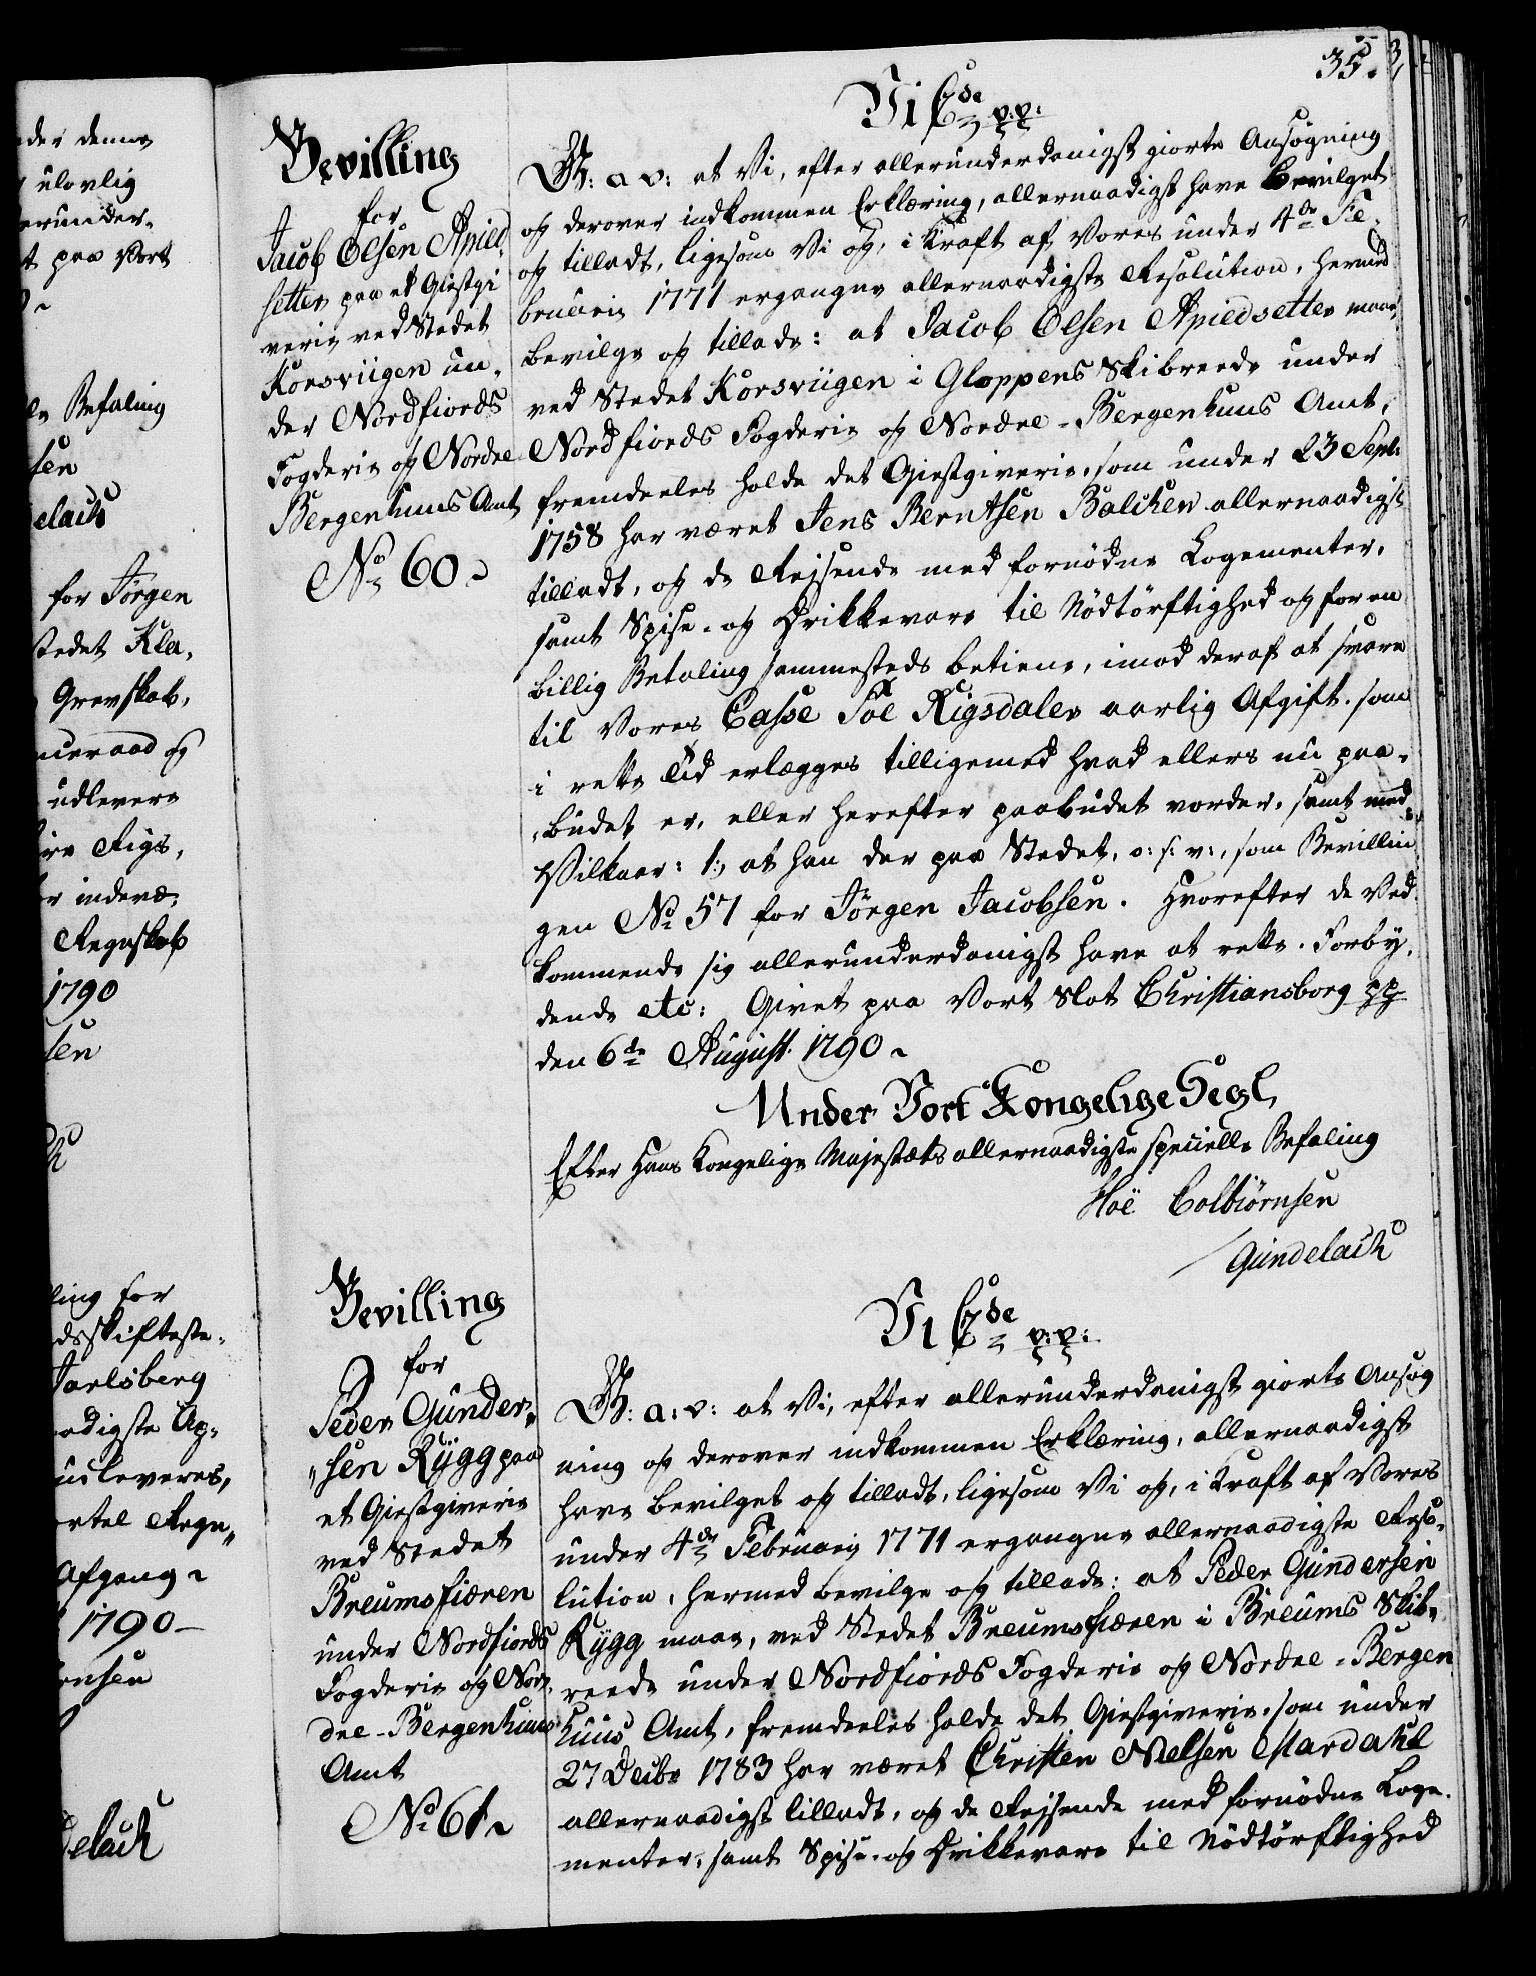 35.
Bevilling
for
Jacob Olsen Apied-
setter paa et Giestgi
verie ved Stedet
Korsviigen un-
der Nordfiords
Fogderie og Nordre
Bergenhuus Amt
No 60.
Vi C7de p:p:
G: a v: at Vi, efter allerunderdanigst giorte Ansøgning
og derover indkommen Erklæring, allernaadigst have bevilget
og tilladt, ligesom Vi og, i Kraft af Vores under 4de Fe-
bruarii 1771 ergangne allernaadigste Resolution, hermed
bevilge og tillade: at Jacob Olsen Apiedsetter maae,
ved Stedet Korsviigen i Gloppens Skibreede under
Nordfiords Fogderie og Nordre-Bergenhuus Amt,
fremdeeles holde det Giestgiverie, som under 23 Sept:
1758 har været Jens Berntsen Balchen allernaadigst
tilladt, og de Rejsende med fornødne Logementer,
samt Spise- og Drikkevare til Nødtørftighed og for en
billig Betaling sammesteds betiene, imod deraf at svare
til Vores Casse Toe Rigsdaler aarlig Afgift, som
i rette Tid erlægges tilligemed hvad ellers nu paa-
budet er, eller herefter paabudet vorder, samt med
Vilkaar: 1:, at han der paa Stedet, o: s: v:, som Bevillin
gen No 57 for Jørgen Jacobsen. Hvorefter de Ved-
kommende sig allerunderdanigst have at rette. Forby-
dende etc: Givet paa Vort Slot Christiansborg pp
den 6te August 1790
Under Vort Kongelige Segl,
Efter Hans Kongelige Majestæts allernaadigste specielle Befaling
Hoë Colbiørnsen
Gundelach
Bevilling
for
Peder Gunder-
sen Rygg paa
et Giestgiverie
ved Stedet
Breumsfiæren
under Nordfiords
Fogderie og Nor-
dre-Bergenhuus
Amt
No 61
Vi C7de p:p:
G: a: v: at Vi, efter allerunderdanigst giorte Ansøg
ning og derover indkommen Erklæring, allernaadigst
have bevilget og tilladt, ligesom Vi og, i Kraft af Vores
under 4de Februarii 1771 ergangne allernaadigste Reso-
lution, hermed bevilge og tillade: at Peder Gundersen
Rygg maae, ved Stedet Breumsfiæren i Breums Skib-
reede under Nordfiords Fogderie og Nordre-Bergen
huus Amt, fremdeeles holde det Giestgiverie, som under
27 Decbr 1783 har været Christen Nielsen Mardahl
allernaadigst tilladt, og de Rejsende med fornødne Loge-
menter, samt Spise- og Drikkevare til Nødtørftighed